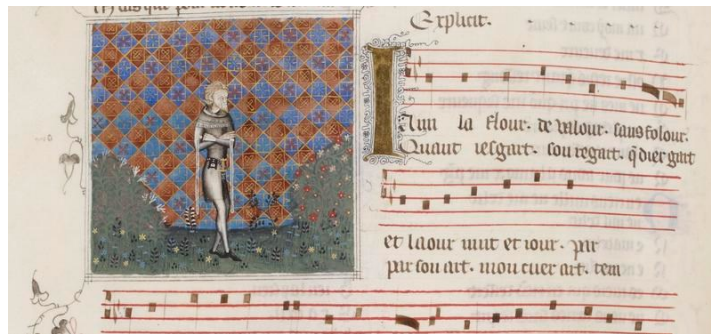 Explicit.
I Aim la flour. de valour. sans folour.
Quant iesgart. son regart.
et laour nuit et iour. par
par son art. mon cuer art. tem